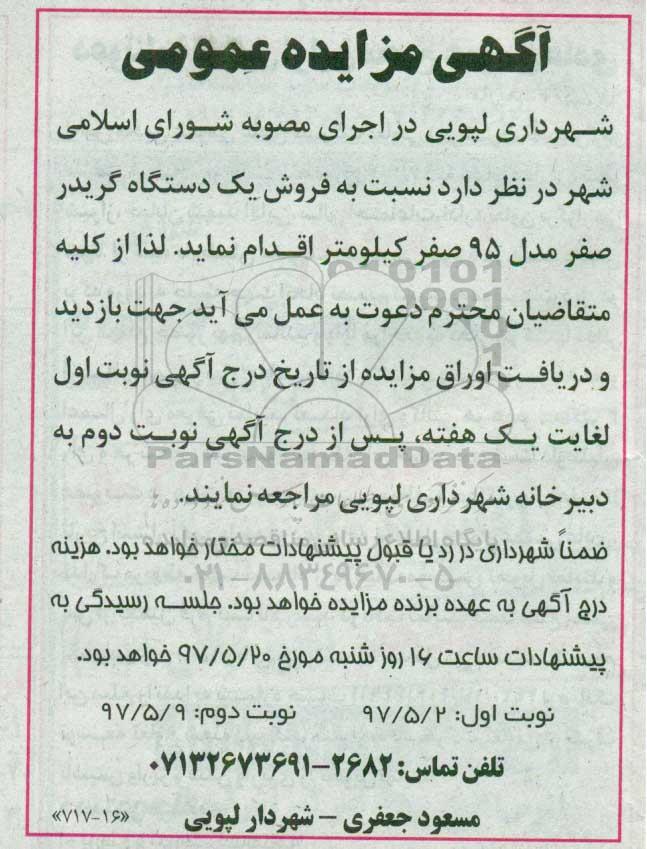 آگهی مزایده عمومی
شهرداری لپویی در اجرای مصوبه شورای اسلامی
شهر در نظر دارد نسبت به فروش یک دستگاه گریدر
صفر مدل ۹۵ صفر کیلومتر اقدام نماید. لذا از کلیه
متقاضیان محترم دعوت به عمل می آید جهت بازدید
و دریافت اوراق مزایده از تاریخ درج آگهی نوبت اول
لغایت یک هفته، پس از درج آگهی نوبت دوم به
ParsNamadData
دبیرخانه شهرداری لپویی مراجعه نمایند.
ضمناً شهرداری در رد یا قبول پیشنهادات مختار خواهد بود. هزینه
۰۲۱-۸۸۳۴۹۶۷۰-۵
درج آگهی به عهده برنده مزایده خواهد بود. جلسه رسیدگی به
پیشنهادات ساعت ۱۶ روز شنبه مورخ ۹۷/۵/۲۰ خواهد بود.
نوبت اول: ۹۷/۵/۲ نوبت دوم: ۹۷/۵/۹
تلفن تماس: ۲۶۸۲-۰۷۱۳۲۶۷۳۶۹۱
مسعود جعفری - شهردار لپویی «۷۱۷-۱۶»